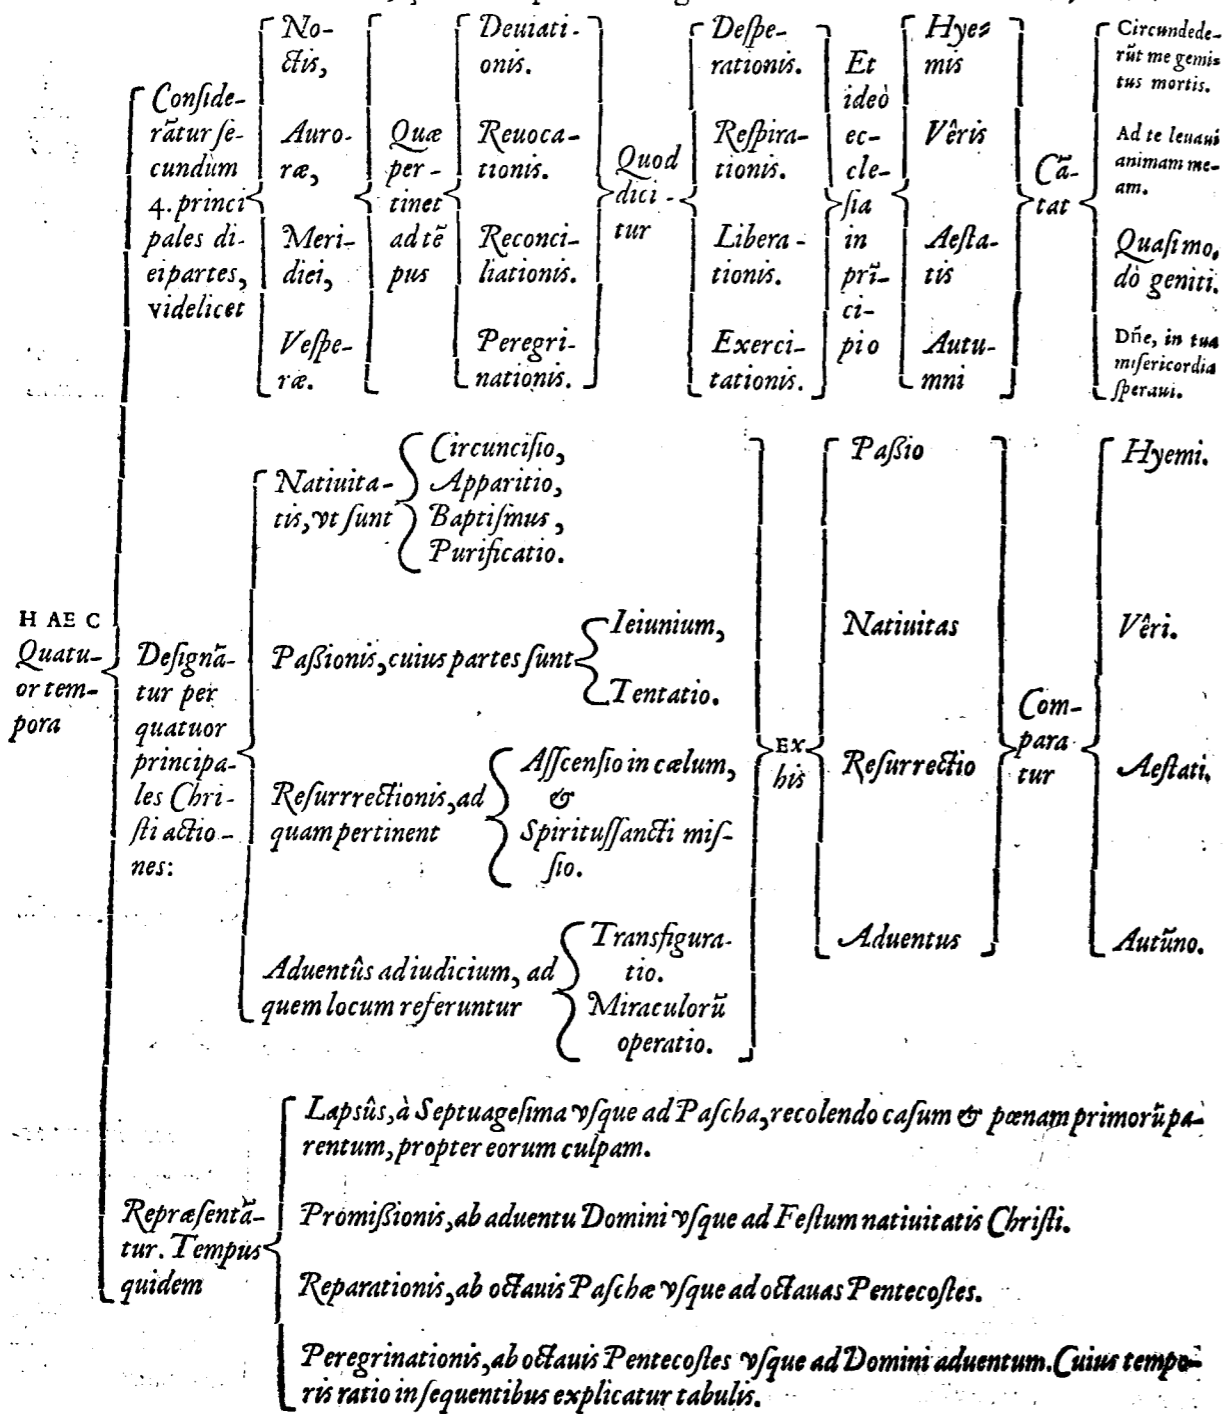 Conside-
rãtur se-
cundùm
4. princi
pales di-
ei partes,
videlicet
No-
ctis,
Auro-
ræ,
Meri-
diei,
Vespe-
ræ.
Quæ
per-
tinet
ad tẽ
pus
Deuiati-
onis.
Reuoca-
tionis.
Reconci-
liationis.
Peregri-
nationis.
Quod
dici-
tur
Despe-
rationis.
Respira-
tionis.
Libera-
tionis.
Exerci-
tationis.
Et
ideò
ec-
cle-
sia
in
prĩ-
ci-
pio
Hye-
mis
Vêris
Aesta-
tis
Autu-
mni
Cã-
tat
Circundede-
rũt me gemi-
tus mortis.
Ad te leuaui
animam me-
am.
Quasimo,
dò geniti.
Dñe, in tua
misericordia
speraui.
HAEC
Quatu-
or tem-
pora
Designã-
tur per
quatuor
principa-
les Chri-
sti actio-
nes:
Natiuita-
tis, vt sunt
Circuncisio,
Apparitio,
Baptismus,
Purificatio.
Passionis, cuius partes sunt
Ieiunium,
Tentatio.
Resurrrectionis, ad
quam pertinent
Asscensio in cælum,
&
Spiritussancti mis-
sio.
Aduentûs ad iudicium, ad
quem locum referuntur
Transfigura-
tio.
Miraculorũ
operatio.
Ex
his
Passio
Natiuitas
Resurrectio
Aduentus
Com-
para
tur
Hyemi.
Vêri.
Aestati.
Autũno.
Repræsentã-
tur. Tempus
quidem
Lapsûs, à Septuagesima vsque ad Pascha, recolendo casum & pœnam primorũ pa-
rentum, propter eorum culpam.
Promissionis, ab aduentu Domini vsque ad Festum natiuitatis Christi.
Reparationis, ab octauis Paschæ vsque ad octauas Pentecostes.
Peregrinationis, ab octauis Pentecostes vsque ad Domini aduentum. Cuius tempo-
ris ratio in sequentibus explicatur tabulis.